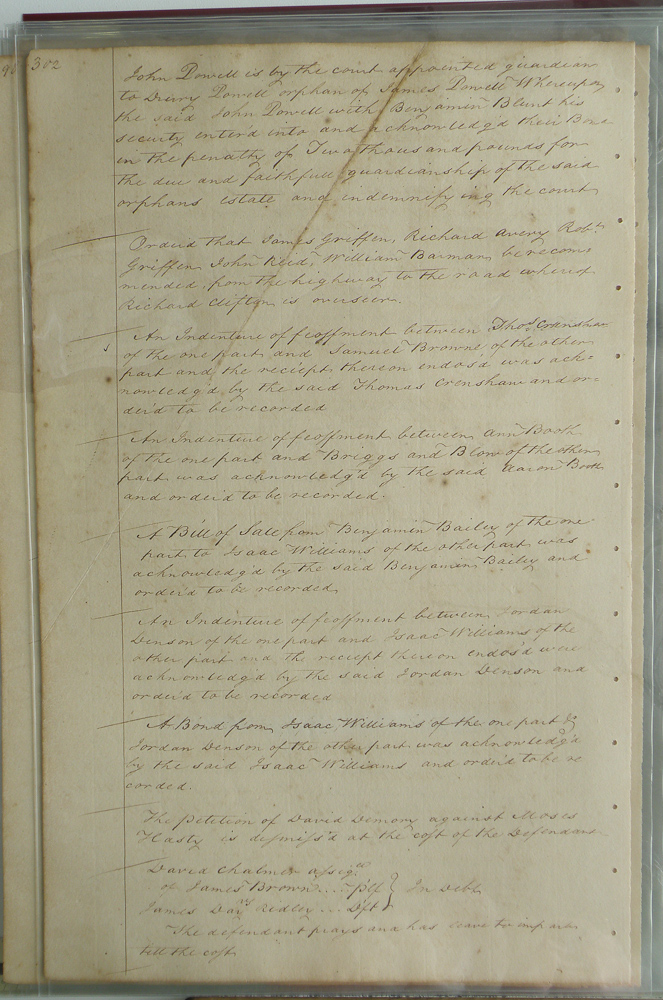 302
John Powell is by the court appointed guardian
to Drury Powell orphan of James Powell Whereupon
the said John Powell with Benjamin Blunt his
security enterd into and acknowledg'd their Bond
in the penalty of Two thousand pounds for
the due and faithfull guardianship of the said
orphans estate and indemnifying the court
Orderd that James Griffen, Richard Avery Robt.
Griffen John Reid, William Barman be recom=
mended from the highway to the road whereof
Richard Clifton is overseer.
An Indenture of feoffment between Thos. Cranshaw
of the one part and Samuel Browne of the other
part and the reciept thereon endos'd was ack=
nowledg'd by the said Thomas Crenshaw and or=
der'd to be recorded
An Indenture of feoffment between Ann Booth
of the one part and Briggs and Blow of the other
part was acknowledg'd by the said Aaron Booth
and order'd to be recorded.
A Bill of Sale from Benjamin Bailey of the one
part to Isaac Williams of the other part was
acknowledg'd by the said Benjamin Bailey and
order'd to be recorded
An Indenture of feoffment between Jordan
Denson of the one part and Isaac Williams of the
other part and the reciept thereon endos'd were
acknowledg'd by the said Jordan Denson and
order'd to be recorded
A Bond from Isaac Williams of the one part &
Jordan Denson of the other part was acknowledg'd
by the said Isaac Williams and order'd to be re
corded.
The petition of David Demory against Moses
Hasty is dismiss'd at the cost of the Defendant
David Chalmer assigee
of James Brown .... Plf } In Debt
James Day Ridley ... Dft
The defendant prays and has leave to imparle
till the cost